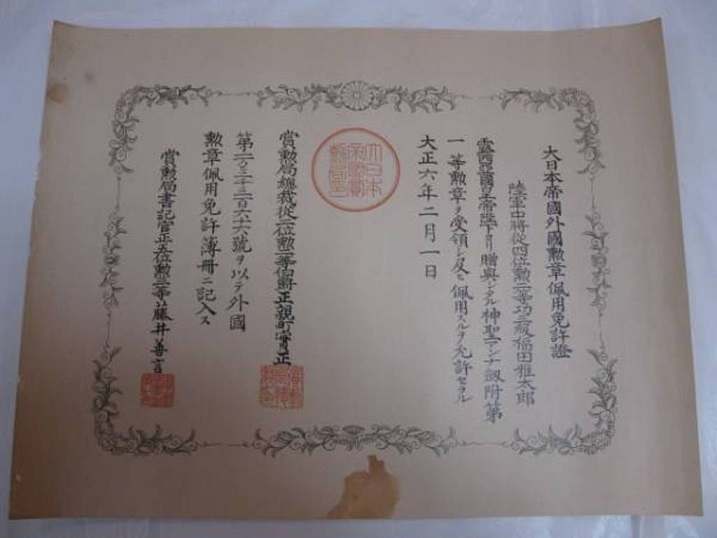 大日本帝國外國勲章佩用免許證
陸軍中將從四位勲二等功三級福田雅太郎
露西亞國皇帝陛下ヨリ贈與シタル神聖アンナ劔附第
一等勲章ヲ受領シ及ヒ佩用スルヲ允許セラル
大正六年二月一日
賞勲局總裁從二位勲一等伯爵正親町實正
第二〇三千三百六十六號ヲ以テ外國
勲章佩用免許簿冊ニ記入ス
賞勲局書記官正五位勲三等藤井善言